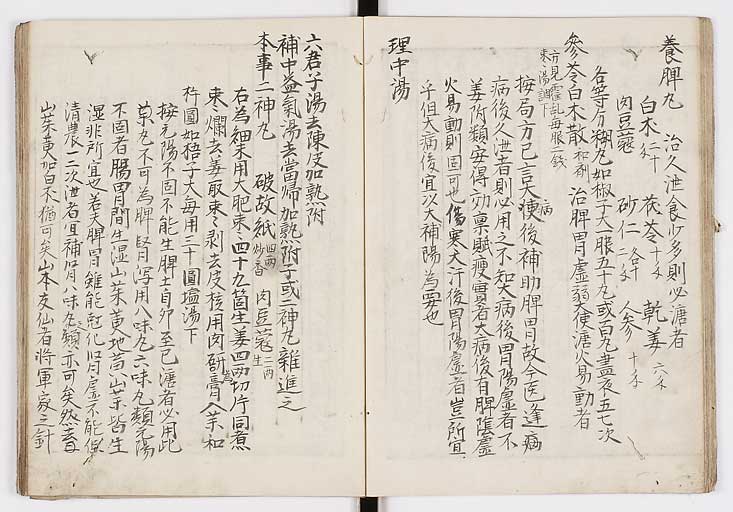 養脾丸 治久泄食少多則必溏者
白朮 茯苓 乾姜
肉豆蔻 砂仁 人参
各等分糊丸如椒子大一服五十丸或百丸昼夜五七次
參苓白朮散 和剤 治脾胃虚弱大便溏火易動者
方見霍乱毎服一銭
棗湯調下
按局方已言大病後補助脾胃故今医逢病
病後久泄者則必用之不知大病後胃陽虚者不
姜附類安得功稟賦痩實者大病後有脾陰虚
火易動則固可也傷寒大汗後胃陽虚者豈所宜
乎但大病後宜以大補陽為要也
理中湯
六君子湯去陳皮加熟附
補中益氣湯去當帰加熟附子或二神丸雜進之
本事二神丸 破故紙 四両炒香 肉豆蔻 二両生
右為細末用大肥棗四十九箇生姜四両切片同煮
棗爛去姜取棗剥去皮核用肉研膏入薬和
杵圓如梧子大毎用三十圓塩湯下
按元陽不固不能生脾土自卯至巳溏者必用此
菓丸不可為脾腎瀉用八味丸六味丸類元陽
不固者腸胃間生湿山茱黄地苗山薬皆生
湿非所宜也若夫脾胃雖能剋化腎虚不能
清農一二次泄者宜補腎八味丸之類亦可矣然去
山茱萸加白朮猶可矣山本友仙者將軍家之針